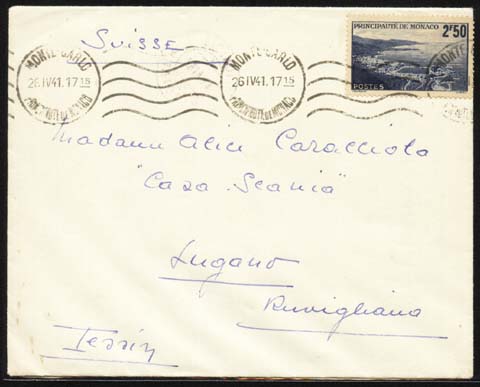 PRINCIPAUTÉ DE MONACO
2F50
POSTES
MONTE-CARLO
26 IV 41. 17 15
PRINCIPAUTE DE MONACO
MONTE-CARLO
26 IV 41. 17 15
PRINCIPAUTE DE MONACO
Suisse
Madame Alice Caracciola
"Casa Scania"
Lugano
Ruvigliana
Tessin